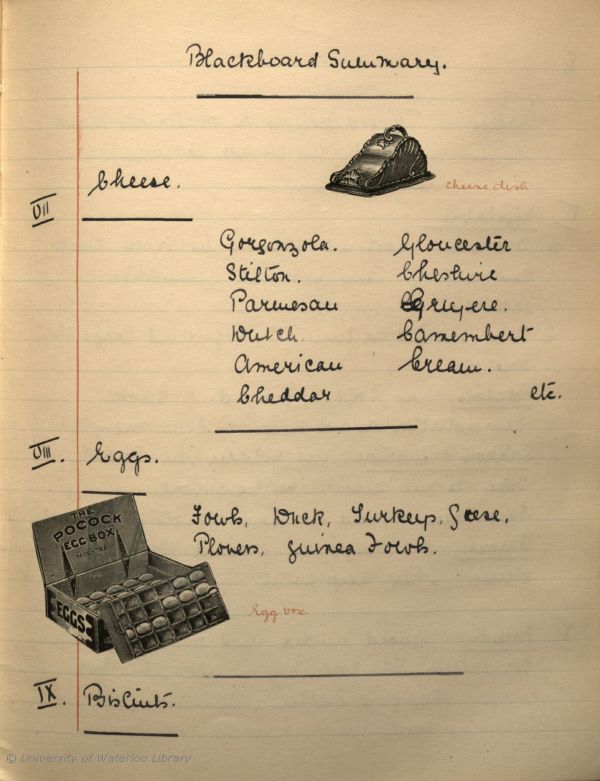 Blackboard Summary.
Cheese.
cheese dish
VII
Gorgonzola. Gloucester
Stilton. Cheshire
Parmesan Gruyere.
Dutch Camembert
American Cream.
Cheddar etc.
VIII. Eggs.
THE
POCOCK
EGG BOX
PATENTED
EGGS
Fowls, Duck, Turkeys, Geese,
Plovers, Guinea Fowls.
Egg box
IX. Biscuits.
© University of Waterloo Library